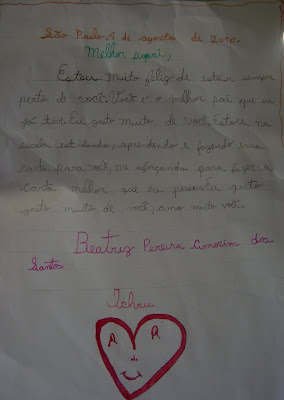 São Paulo 4 de agosto de 2010.
Melhor papai,
Estou muito feliz de estar sempre
perto de você. Você é o milhor pai que eu
já tive. Eu gosto muito de você. Estou na
escola estudando, aprendendo e fazendo essa
carta para você, me esforçando para fazer a
carta milhor que eu posso. Eu gosto
gosto muito de você, amo muito você.
Beatriz Pereira Amorim dos
Santos
Tchau
A R